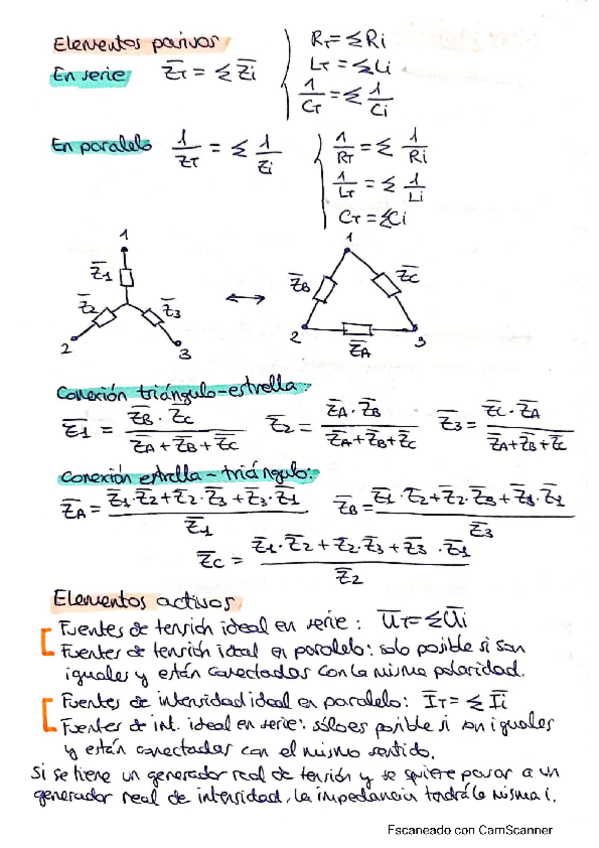 Elementos pasivos
En serie Z̅T = ΣZ̅i
RT = ΣRi
LT = ΣLi
1/CT = Σ 1/Ci
En paralelo 1/ZT = Σ 1/Zi
1/RT = Σ 1/Ri
1/LT = Σ 1/Li
CT = ΣCi
1 1
Z̅1 Z̅B Z̅C
Z̅2 Z̅3 ↔
2 3 2 3
Z̅A
Conexión triángulo-estrella:
Z̅1 = Z̅B · Z̅C / Z̅A + Z̅B + Z̅C Z̅2 = Z̅A · Z̅B / Z̅A + Z̅B + Z̅C Z̅3 = Z̅C · Z̅A / Z̅A + Z̅B + Z̅C
Conexión estrella-triángulo:
Z̅A = Z̅1·Z̅2 + Z̅2·Z̅3 + Z̅3·Z̅1 / Z̅1 Z̅B = Z̅1·Z̅2 + Z̅2·Z̅3 + Z̅3·Z̅1 / Z̅3
Z̅C = Z̅1·Z̅2 + Z̅2·Z̅3 + Z̅3·Z̅1 / Z̅2
Elementos activos
Fuentes de tensión ideal en serie: U̅T = ΣU̅i
Fuentes de tensión ideal en paralelo: solo posible si son
iguales y están conectadas con la misma polaridad.
Fuentes de intensidad ideal en paralelo: I̅T = ΣI̅i
Fuentes de int. ideal en serie: sólo es posible si son iguales
y están conectadas con el mismo sentido.
Si se tiene un generador real de tensión y se quiere pasar a un
generador real de intensidad, la impedancia tendrá la misma i.
Escaneado con CamScanner